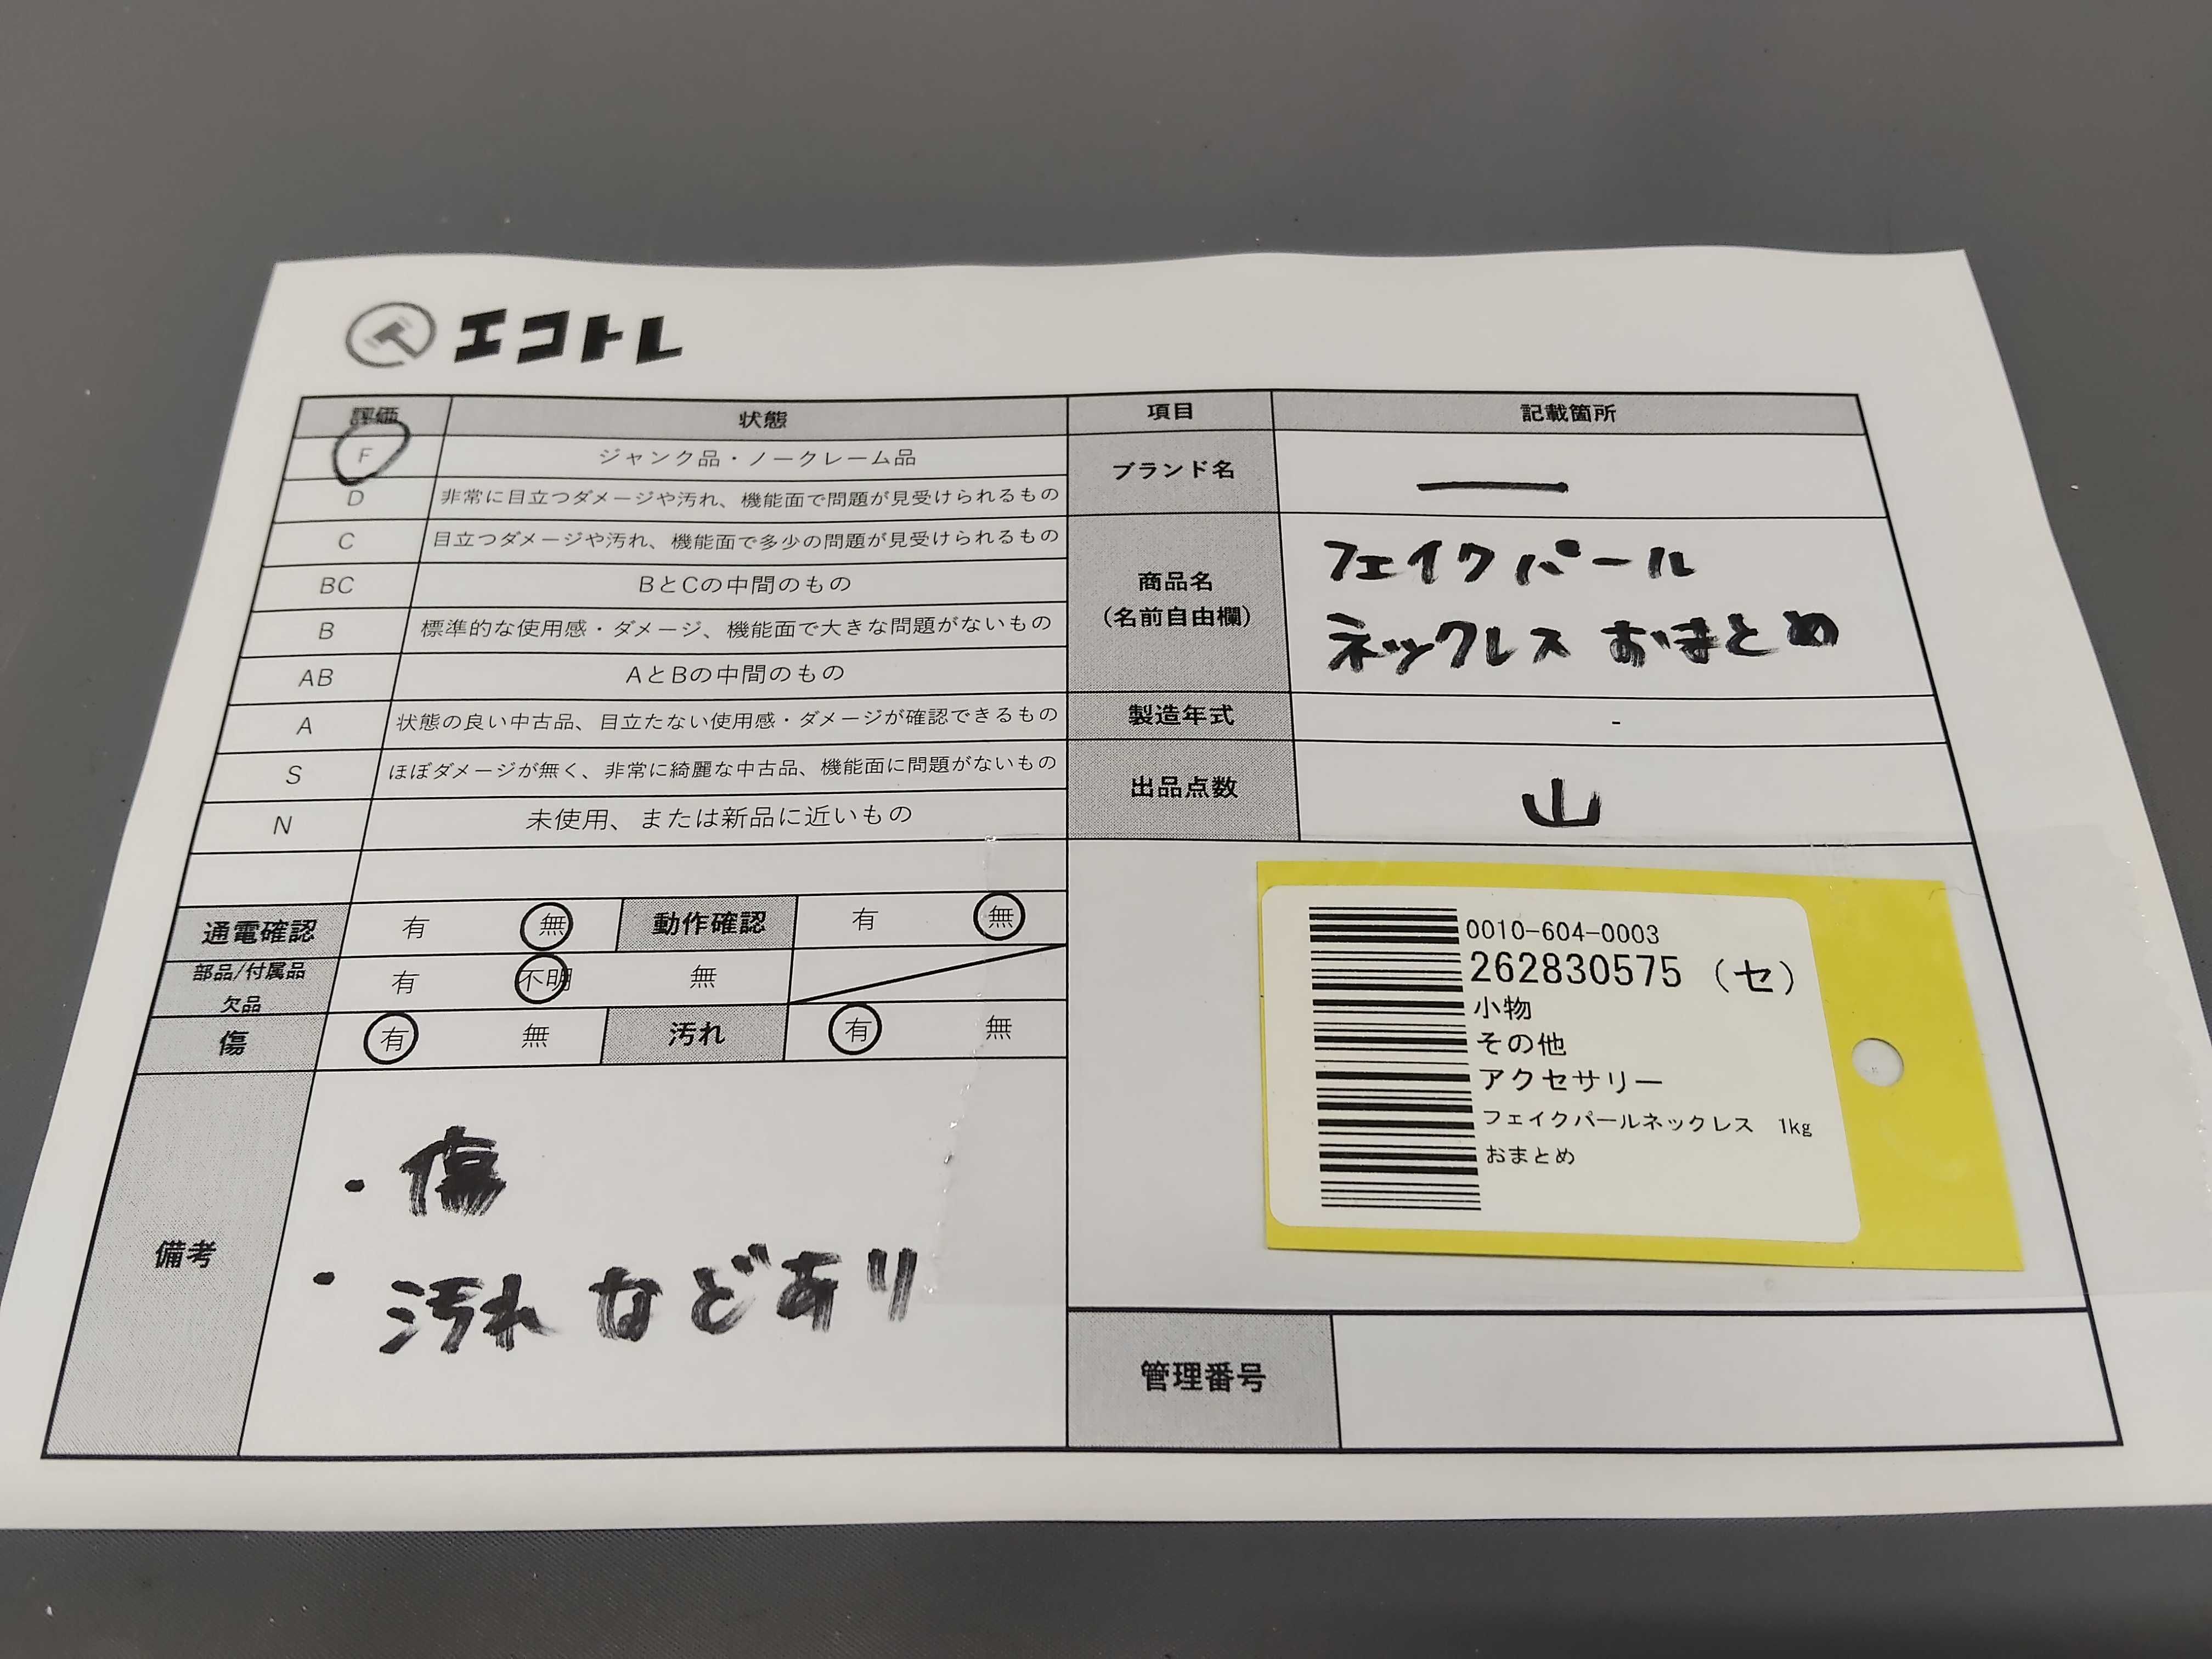 エコトレ
評価 状態
F ジャンク品・ノークレーム品
D 非常に目立つダメージや汚れ、機能面で問題が見受けられるもの
C 目立つダメージや汚れ、機能面で多少の問題が見受けられるもの
BC BとCの中間のもの
B 標準的な使用感・ダメージ、機能面で大きな問題がないもの
AB AとBの中間のもの
A 状態の良い中古品、目立たない使用感・ダメージが確認できるもの
S ほぼダメージが無く、非常に綺麗な中古品、機能面に問題がないもの
N 未使用、または新品に近いもの
通電確認 有 無 動作確認 有 無
部品/付属品
欠品 有 不明 無
傷 有 無 汚れ 有 無
備考
・傷
・汚れ などあり
項目 記載箇所
ブランド名 ―
商品名
(名前自由欄)
フェイクパール
ネックレス おまとめ
製造年式 -
出品点数 山
0010-604-0003
262830575 (セ)
小物
その他
アクセサリー
フェイクパールネックレス 1kg
おまとめ
管理番号